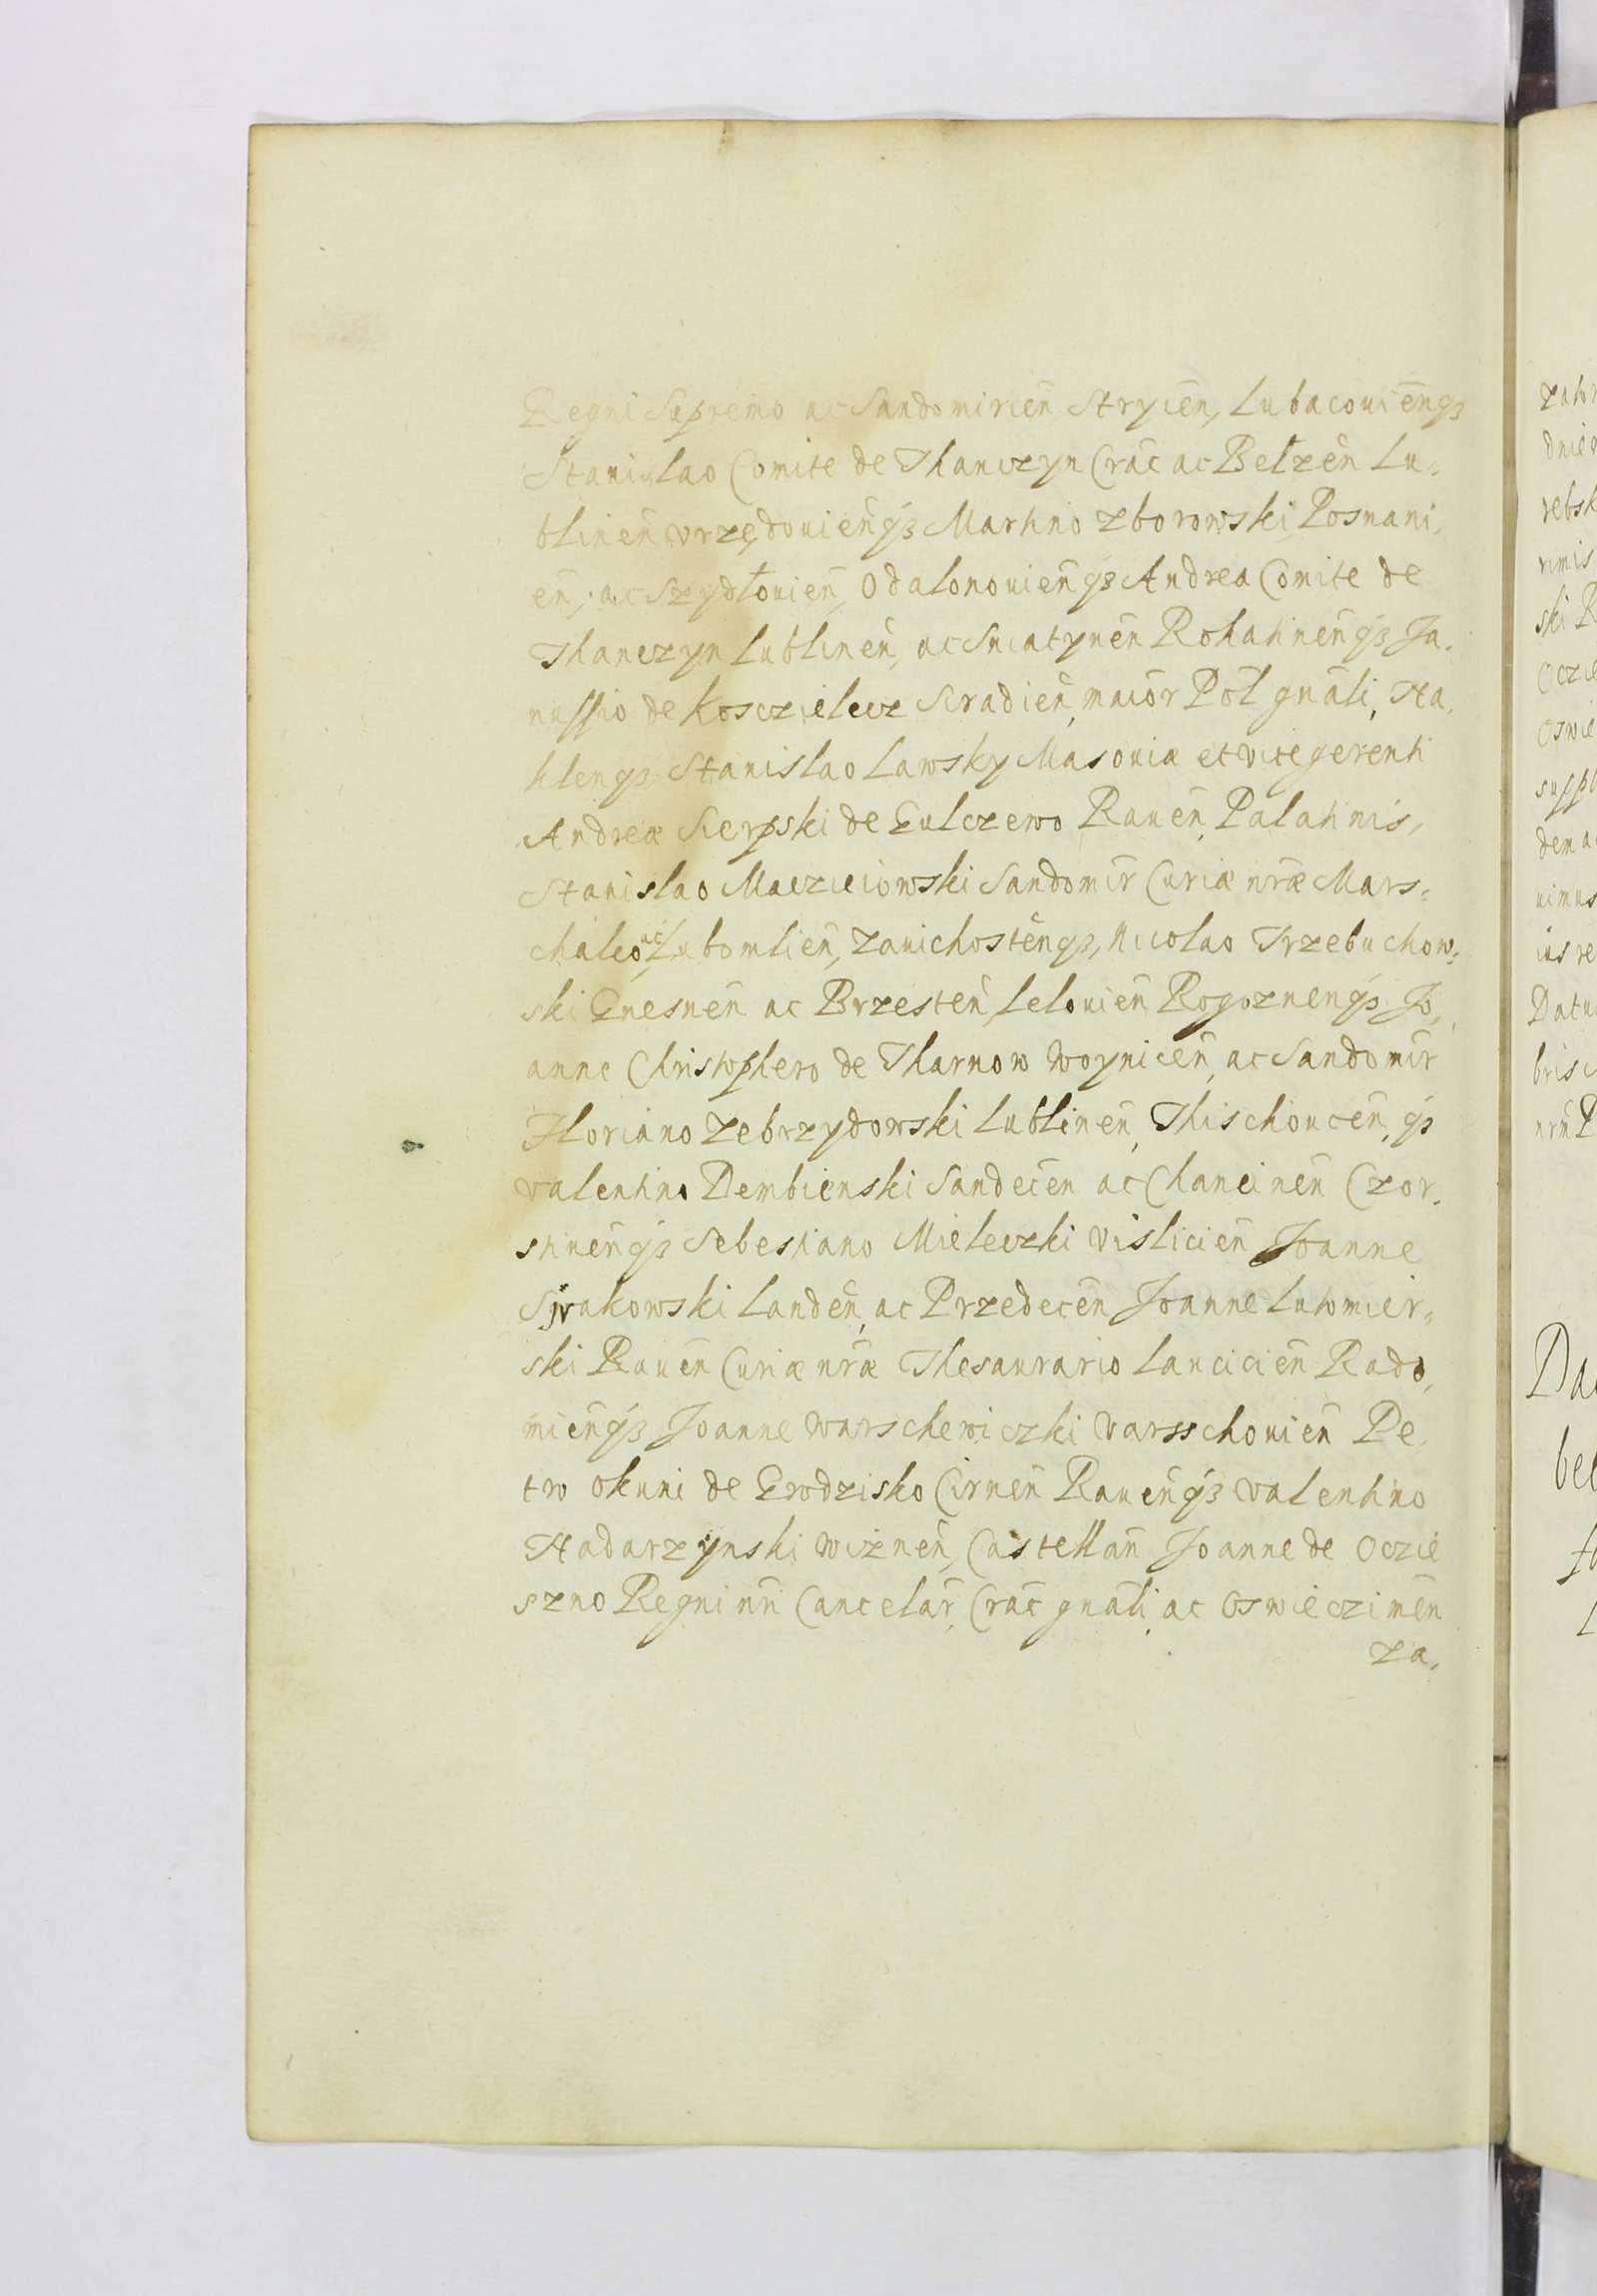 Regni Supremo ac Sandomirien̄, Stryien̄, Lubacouien̄qȝ
Stanislao Comite de Thanczyn Crac̄ ac Belzen̄ Lu-
blinen̄ vrzędouien̄qȝ Martino zborowski Posnani,
en̄, ac Szydłouien̄, Odalonouien̄qȝ Andrea Comite de
Thanczyn Lublinen̄, ac Sniatynen̄ Rohatinen̄qȝ Ja.
nussio de Kosczielecz Siradien̄, maior̄ Pol̄ gn̄ali, Na.
klenqȝ, Stanislao Lawsky Masouiæ et vicegerenti
Andreæ Sierpski de Gulczewo Rauen̄ Palatinis,
Stanislao Maczieiowski Sandomir̄ Curiæ nr̄æ Mars-
chalco ac Lubomlien̄, Zauichosten̄qȝ, Nicolao Trzebuchow-
ski Gnesnen̄ ac Brzesten̄ Lelouien̄ Rogoznenqȝ Jo,
anne Christophero de Tharnow Woynicen̄, ac Sandomir̄
Floriano Zebrzydowski Lublinen̄, Thischoucen̄,qȝ
Valentino Dembienski Sandecen̄ ac Chancinen̄ Czor.
stinen̄qȝ Sebestiano Mieleczki Vislicien̄ Joanne
Syrakowski Landen̄, ac Przedecen̄ Joanne Lutomier-
ski Rauen̄ Curiæ nr̄æ Thesaurario Lancicien̄ Rado,
mien̄qȝ Joanne Warschewiczki Varsschouien̄ Pe
tro Okuni de Grodzisko Cirnen̄ Rauen̄qȝ Valentino
Nadarzynski Wiznen̄, Castellan̄ Joanne de Oczie
szno Regni nr̄i Cancelar̄, Crac̄ gn̄ali, ac Oswieczimen̄
Za,
zator
dnie
rebsk
rimis
ski R
Oczie
Oswie
suppl
dem a
uimus
ius re
Datu
bris
nrm̄ P
Da
be
L